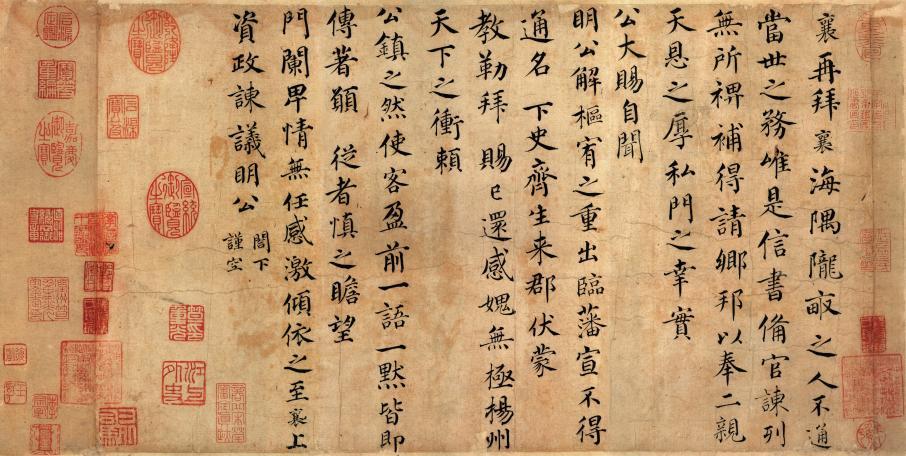 襄再拜襄海隅隴畝之人不通
當世之務唯是信書備官諫列
無所裨補得請鄉邦以奉二親
天恩之厚私門之幸實
公大賜自聞
明公解樞宥之重出臨藩宣不得
通名 下史齊生来郡伏蒙
教勒拜 賜已還感媿無極楊州
天下之衝頼
公鎮之然使客盈前一語一黙皆即
傳著願 從者慎之瞻望
門闌卑情無任感激傾依之至襄上
資政諫議明公 閤下
謹空